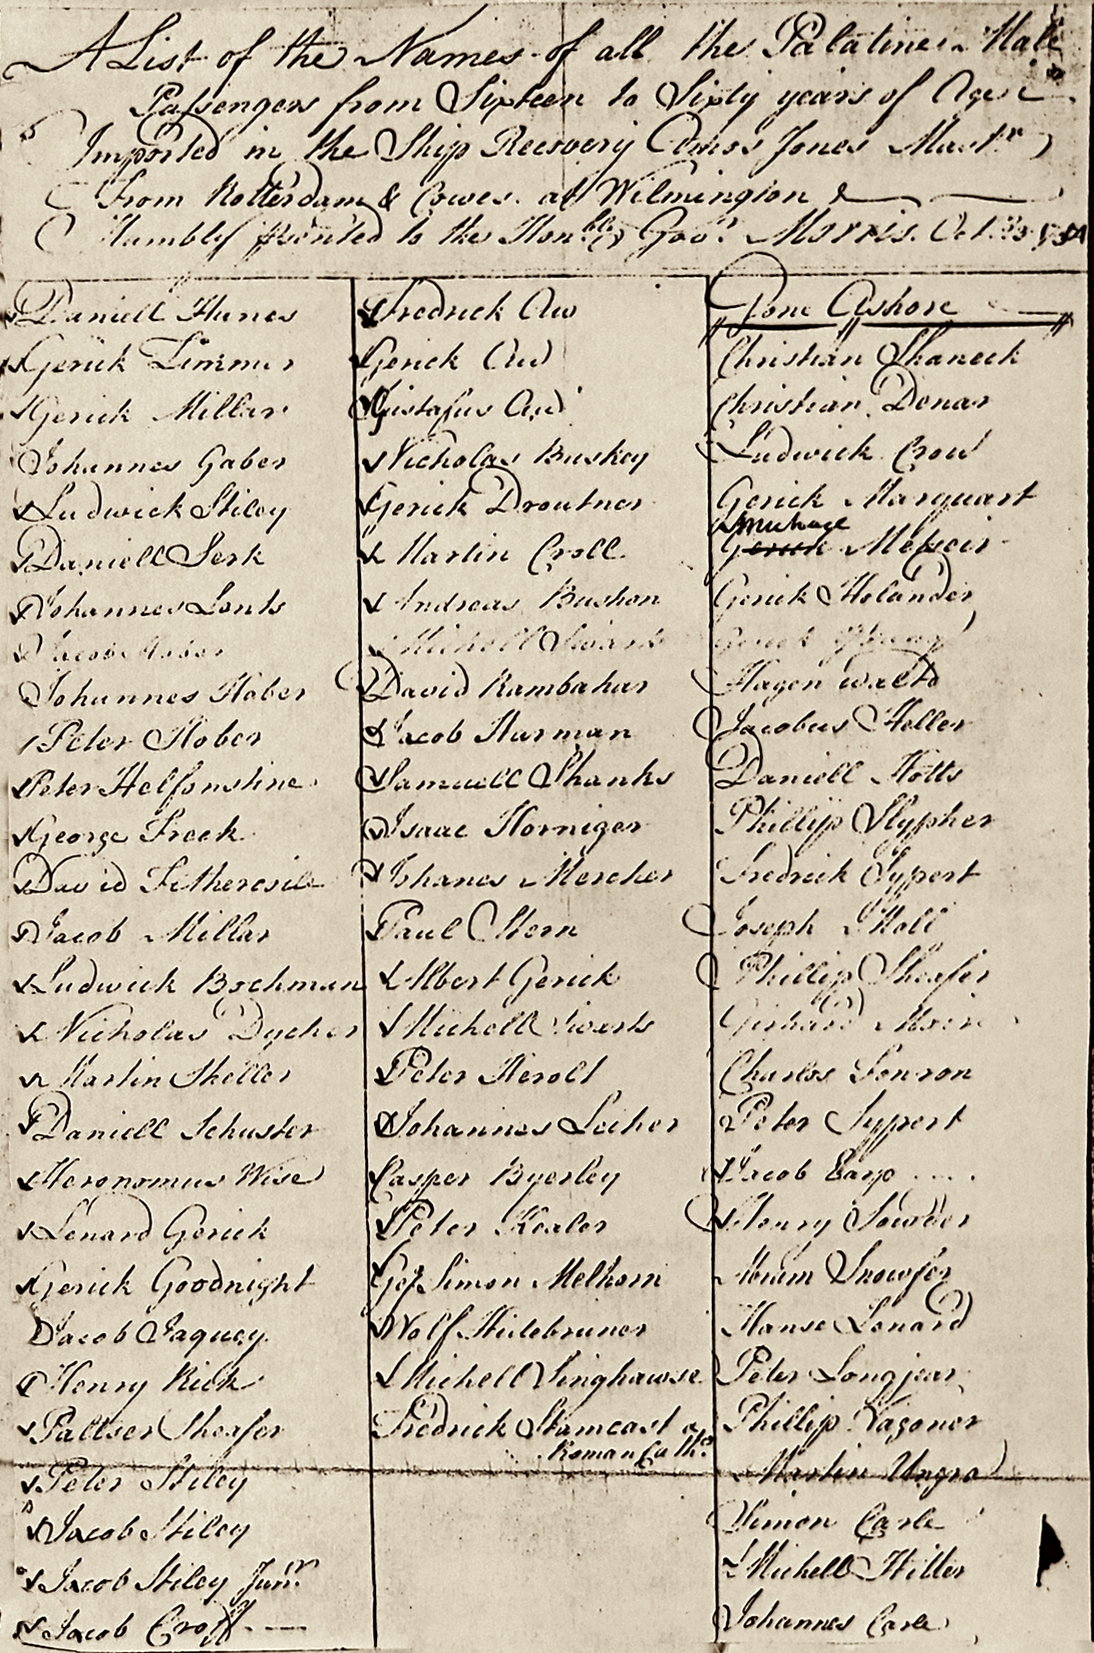 A List of the Names of all the Palatine Male
Passengers from Sixteen to Sixty years of Age
Imported in the Ship Recovery Amos Jones Mastr
From Rotterdam & Cowes at Wilmington &
Humbly prsented to the Honble Govr Morris. Oct.
Daniell Hunes
Gerick Limmer
Gerick Millar
Johannes Gaber
Ludwick Stiley
Daniell Serk
Johannes Lents
Jacob Hober
Johannes Hober
Peter Hober
Peter Helfonstine
George Freek
David Fethercoile
Jacob Millar
Ludwick Bochman
Nicholas Dycher
Martin Sheller
Daniell Schuster
Heronomus Wise
Lenard Gerick
Gerick Goodnight
Jacob Jaquey
Henry Rick
Paltser Sheafer
Peter Stiley
Jacob Stiley
Jacob Stiley Junr.
Jacob Croff
Fredrick Aw
Gerick Aw
Gustafus Aw
Nicholas Buskey
Gerick Droutner
Martin Croll
Andreas Bushon
Michell Swarts
David Rambahar
Jacob Hurman
Samuell Shanks
Isaac Horniger
Johanes Mercher
Paul Stern
Albert Gerick
Michell Swarts
Peter Herolt
Johannes Lecher
Casper Byerley
Peter Kealer
Simon Melhorn
Wolf Hidebruner
Michell Singhawse
Fredrick Stamcast a
Roman Cath.
Gone Ashore
Christian Shaneck
Christian Donar
Ludwick Crow
Gerick Marquart
Michage
Gerick Messeir
Gerick Holander
Gerick
Hagen Waltd
Jacobus Heller
Daniell Hotts
Phillip Slypher
Fredrick Sypert
Joseph Stoll
Phillip Sheafer
Gerhard
Charlos Fonron
Peter Sypert
Jacob Earp
Henry Sowder
Abram Snowfer
Hanse Lenard
Peter Longjear
Phillip Vagoner
Martin Ungra
Simon Carle
Michell Hitler
Johannes Carle